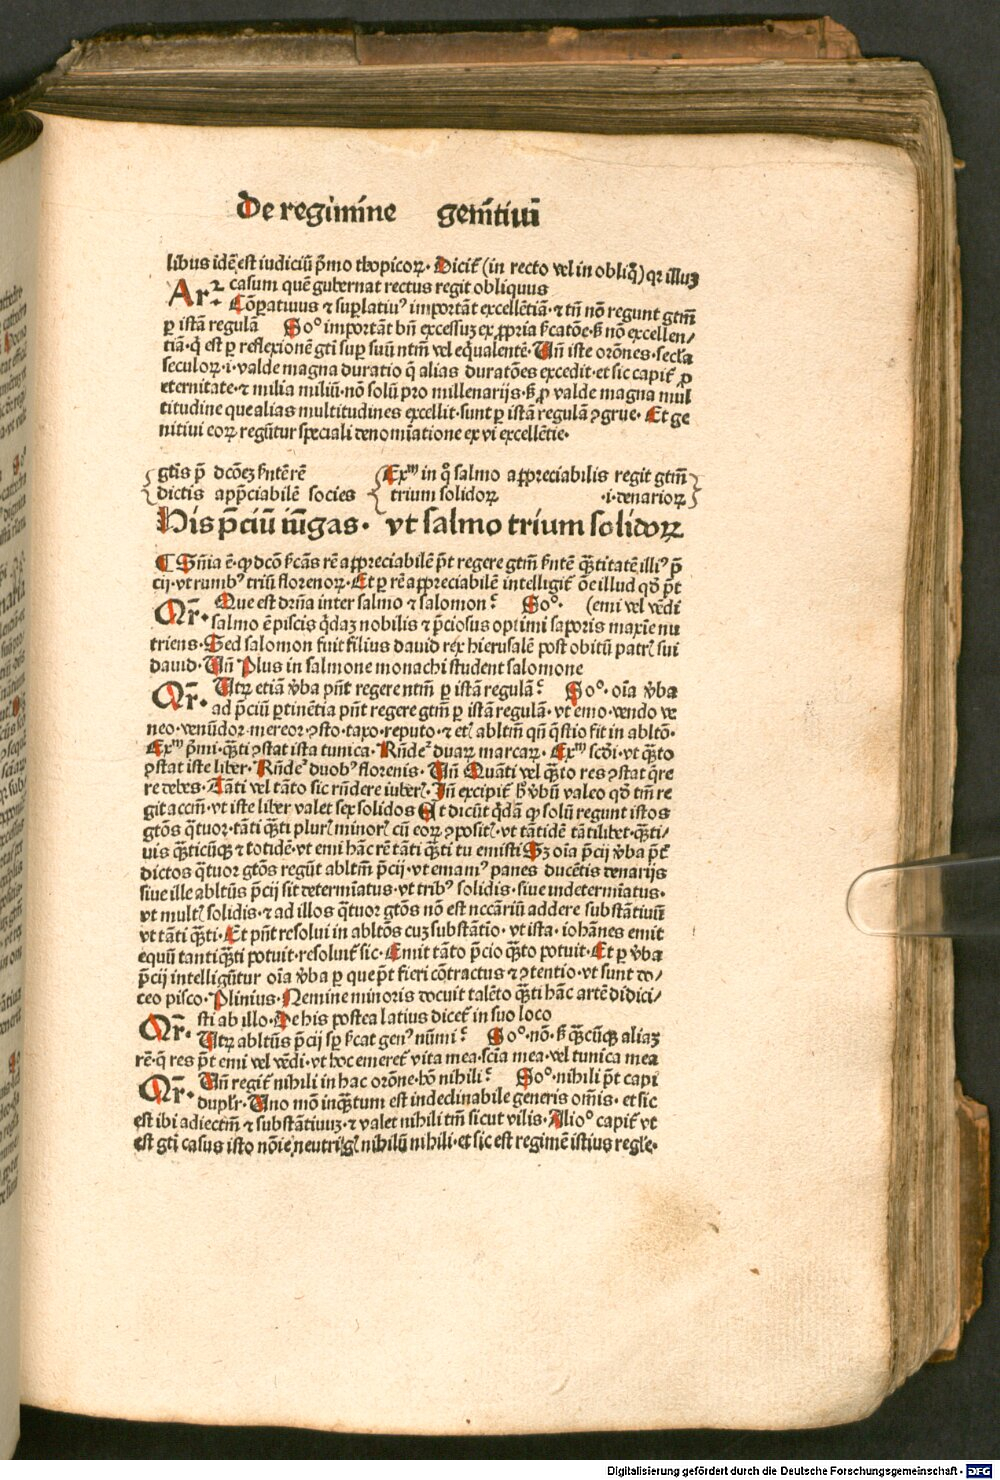 De regimine genitiui
libus idē est iudiciū p̄mo thopicoꝝ. Dicit᷑ (in recto vel in obliq̄) qr illuꝫ
casum quē gubernat rectus regit obliquus
Ar᷑. Cōpatiuus ⁊ suꝑlatiuꝰ importāt excellētiā. ⁊ tn̄ nō regunt gtm̄
ꝑ istā regulā So° importāt bn̄ excessuꝫ ex ꝓpria sc̄atōe. sꝫ nō excellen/
tiā. q̄ est ꝑ reflexionē gti suꝑ suū ntm̄ vel eq̄ualentē. Vn̄ iste orōnes. secl'a
seculoꝝ. i. valde magna duratio q̄ alias duratōes excedit. et sic capit᷑ ꝓ
eternitate. ⁊ milia miliū. nō solū pro millenarijs. sꝫ ꝓ valde magna mul
titudine que alias multitudines excellit. sunt ꝑ istā regulā ꝯgrue. Et ge
nitiui eoꝝ regūtur speciali denomīatione ex vi excellētie.
gtīs p̄ dcōeꝫ sn̄terē
dictis app̄ciabilē socies
Exᵐ in q̄ salmo appreciabilis regit gtm̄
trium solidoꝝ .i. denarioꝝ
His p̄ciū iūgas. vt salmo trium solidoꝝ
¶ Sn̄ia ē. ꝙ dcō sc̄ās rē appreciabilē pn̄t regere gtm̄ sn̄tē q̄ꝫtitatē illiꝰ p̄
cij. vt rumbꝰ triū florenoꝝ. Et ꝑ rē appreciabilē intelligit᷑ oē illud qd̄ pn̄t
Qr᷑. Que est drn̄a inter salmo ⁊ salomon? So°. (emi vel vēdi
salmo ē piscis q̄daꝫ nobilis ⁊ p̄ciosus optimi saporis maxīe nu
triens. Sed salomon fuit filius dauid rex hierusalē post obitū patrꝭ sui
dauid. Vn̄ Plus in salmone monachi student salomone
Qr᷑. Vtꝝ etiā v̄ba pn̄t regere ntm̄ ꝑ istā regulā? So°. oīa v̄ba
ad p̄ciū ꝑtinētia pn̄t regere gtm̄ ꝑ istā regulā. vt emo. vendo ve
neo. venūdor. mercor. ꝯsto. taxo. reputo. ⁊ etꝭ abltm̄ qn̄ q̄stio fit in abltō.
Exᵐ p̄mi. q̄ꝫti ꝯstat ista tunica. Rn̄deꝛ duaꝝ marcaꝝ. Exᵐ scd̄i. vt q̄ꝫto
ꝯstat iste liber. Rn̄deꝛ duobꝰ florenis. Vn̄ Quāti vel q̄ꝫto res ꝯstat q̄re
re debes. Tāti vel tāto sic rn̄dere iuberꝭ. In̄ excipit᷑ hꝭ v̄bū valeo qd̄ tm̄ re
git accm̄. vt iste liber valet sex solidos Et dicūt q̄dā ꝙ solū regunt istos
gtōs q̄tuor. tāti q̄ꝫti plurꝭ minorꝭ cū eoꝝ ꝯpositꝭ. vt tātidē tātilibet. q̄ꝫti/
uis q̄ꝫticūqꝫ ⁊ totidē. vt emi hāc rē tāti q̄ꝫti tu emisti Sꝫ oīa p̄cij v̄ba p̄t᷑
dictos q̄tuor gtōs regūt abltm̄ p̄cij. vt emamꝰ panes ducētis denarijs
siue ille abltūs p̄cij sit determīatus. vt tribꝰ solidis. siue indetermīatus.
vt multꝭ solidis. ⁊ ad illos q̄tuor gtōs nō est nccāriū addere substātiuū
vt tāti q̄ꝫti. Et pn̄t resolui in abltōs cuꝫ substātio. vt ista. iohānes emit
equū tanti q̄ꝫti potuit. resoluit᷑ sic. Emit tāto p̄cio q̄ꝫto potuit. Et ꝑ v̄ba
p̄cij intelligūtur oīa v̄ba ꝑ que pn̄t fieri cōtractus ⁊ ꝯtentio. vt sunt do/
ceo pisco. Plinius. Nemine minoris docuit talēto q̄ꝫti hāc artē didici/
sti ab illo. De his postea latius dicet᷑ in suo loco
Qr᷑. Vtꝝ abltūs p̄cij sꝑ sc̄at genꝰ nūmi? So°. nō. sꝫ q̄ꝫcūqꝫ aliaꝫ
rē. q̄ res pn̄t emi vel vēdi. vt hoc emeret᷑ vita mea. scīa mea. vel tunica mea
Qr᷑. Vn̄ regit᷑ nihili in hac orōne. hō nihili? So°. nihili pn̄t capi
duplr᷑. Vno mō inq̄ꝫtum est indeclinabile generis omīs. et sic
est ibi adiectm̄ ⁊ substātiuuꝫ. ⁊ valet nihili tm̄ sicut vilis. Alio° capit᷑ vt
est gti casus isto nōīe neutri gꝭ nihilū nihili. et sic est regimē istius regl'e.
Digitalisierung gefördert durch die Deutsche Forschungsgemeinschaft - DFG